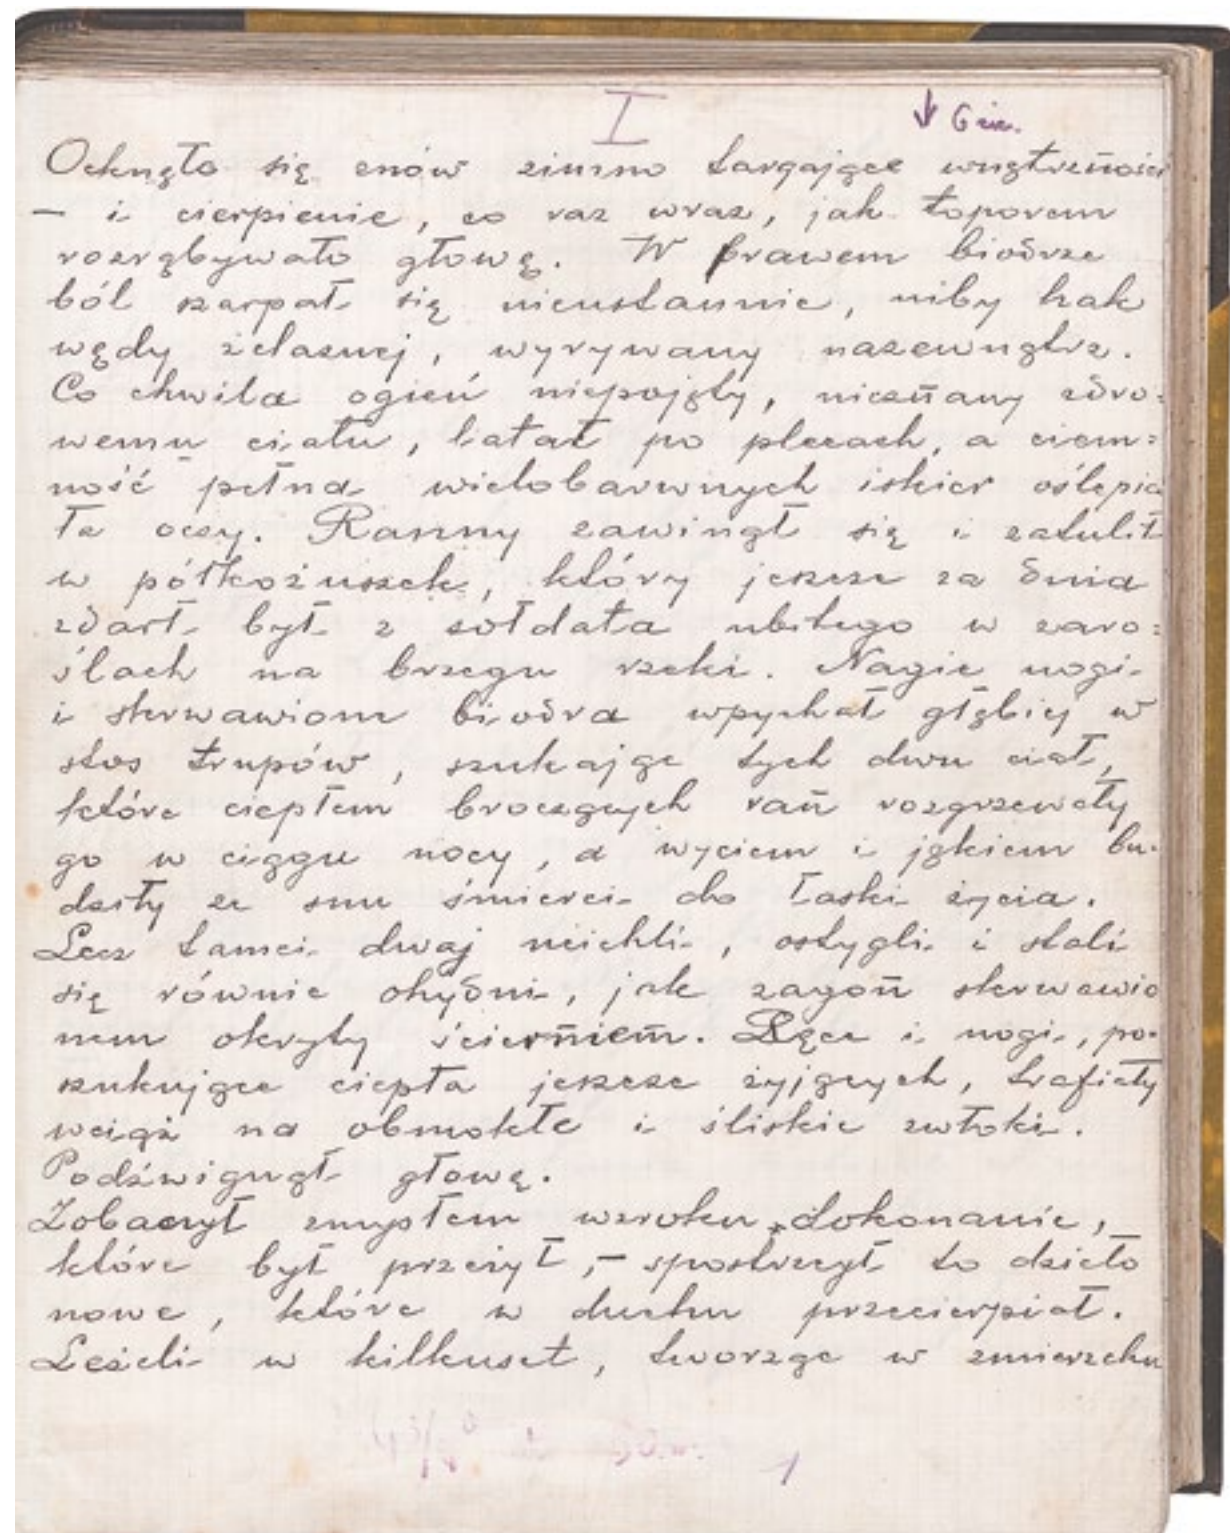 I
Ocknęło się znów zimno targające wnętrzności
— i cierpienie, co raz wraz, jak toporem
rozrąbywało głowę. W prawem biodrze
ból szarpał się nieustannie, niby hak
wędy żelaznej, wyrywany nazewnątrz.
Co chwila ogień niepojęty, nieznany zdro=
wemu ciału, latał po plecach, a ciem=
ność pełna wielobarwnych iskier oślepia
ła oczy. Ranny zawinął się i zatulił
w półkożuszek, który jeszcze za dnia
zdarł był z sołdata ubitego w zaro=
ślach na brzegu rzeki. Nagie nogi
i skrwawione biodra wpychał głębiej w
stos trupów, szukając tych dwu ciał,
które ciepłem broczących ran rozgrzewały
go w ciągu nocy, a wyciem i jękiem bu-
dziły ze snu śmierci do łaski życia.
Lecz tamci dwaj ucichli, ostygli i stali
się równie ohydni, jak zagon skrwawio
nem okryty ścierniem. Ręce i nogi, po-
szukujące ciepła jeszcze żyjących, trafiały
wciąż na obmokłe i śliskie zwłoki.
Podźwignął głowę.
Zobaczył zmysłem wzroku dokonanie,
które był przeżył, — spostrzegł to dzieło
nowe, które w duchu przecierpiał.
Leżeli w kilkuset, tworząc w zmierzchu
1